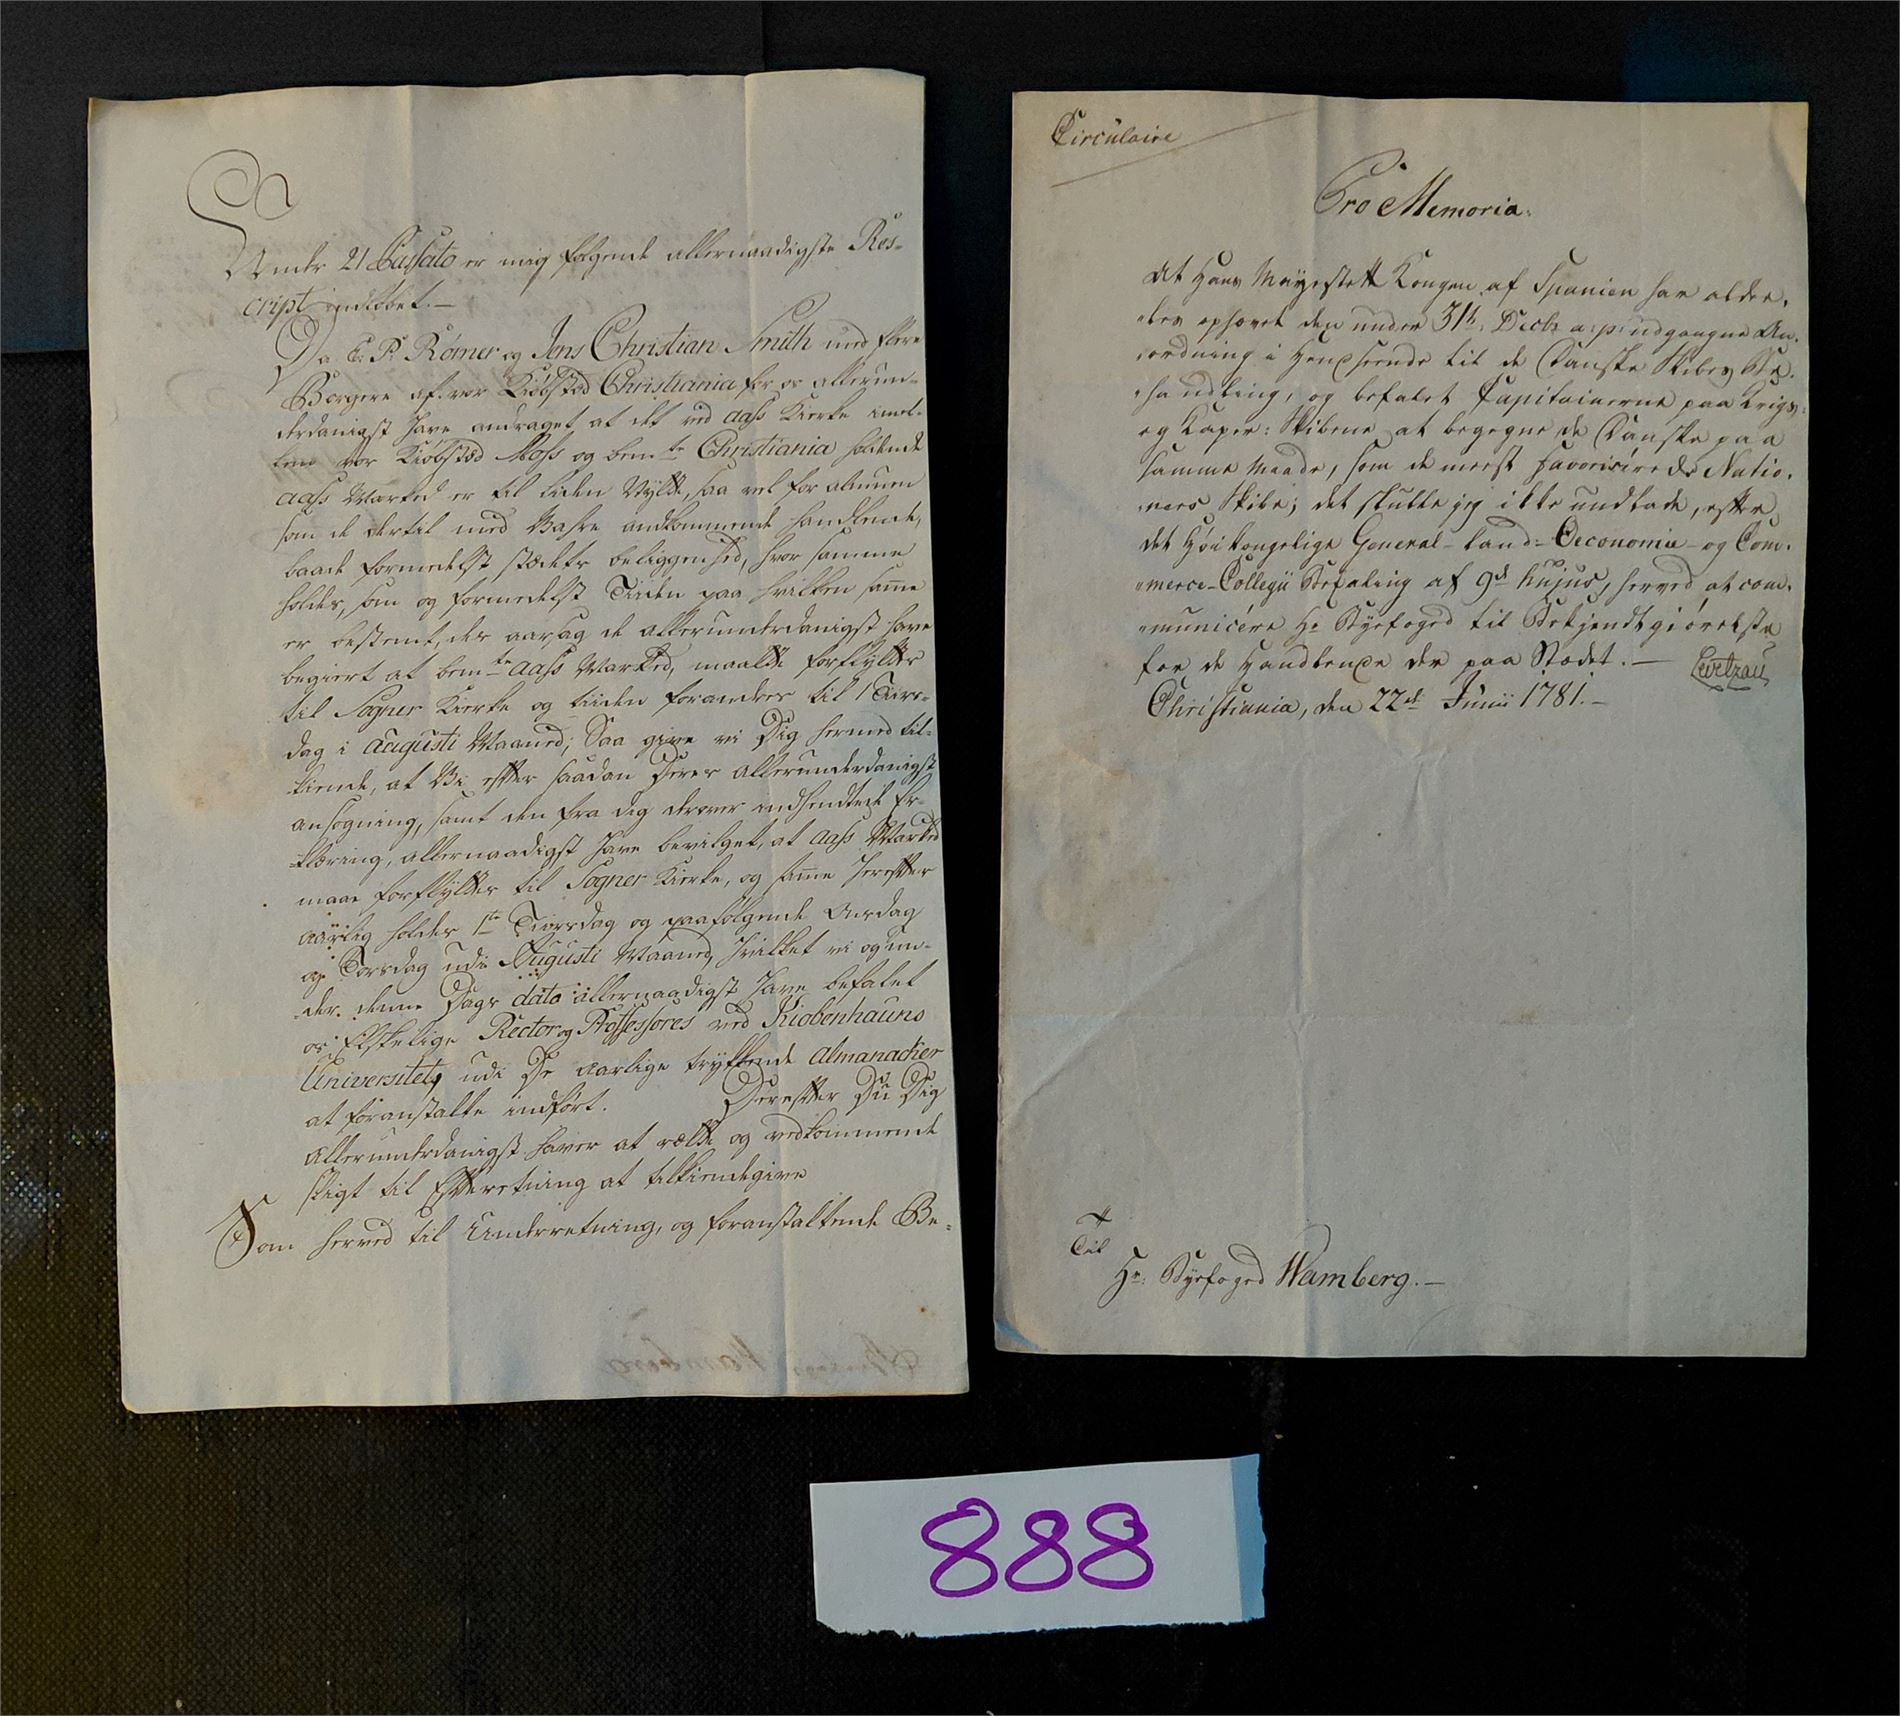 Under 21 Passato er mig følgende allernaadigste Res-
cript indløbet.—
Da C: P: Rømer og Jens Christian Smith med flere
Borgere af vor Kiøbstæd Christiania for os allerun-
derdanigst have andraget at det ved Aass Kierke imel-
lem vor Kiøbstæd Moss og bem.te Christiania holdende
Aass Marked er til liden Nytte, saa vel for almuen
som de dertil med Vahre andkommende handlende,
baade formedelst stædets beliggenhed, hvor samme
holdes, som og formedelst Tiiden paa hvilken same
er bestemt, der aarsag de allerunderdanigst have
begiert at bem.te Aass Marked, maatte forflyttes
til Sogner Kierke og tiiden forandres til 1 Tirs-
dag i Augusti Maaned; Saa give vi Dig hermed til-
kiende, at Vi efter saadan Deres allerunderdanigst
ansøgning, samt den fra dig derover indsendtede Er-
klæring, allernaadigst have bevilget, at Aass Marked
maae forflyttes til Sogner Kierke, og same herefter
aarlig holdes 1te Tiirsdag og paafølgende Onsdag
og Torsdag udi Augusti Maaned, hvilket vi og un-
der denne Dags dato allernaadigst have befalet
os Elskelige Rector og Professores ved Kiøbenhauns
Universitet, udi De aarlige trykkende Almanacker
at foranstalte indført. Derefter Du Dig
allerunderdanigst haver at rætte og vedkommende
sligt til Efterretning at tilkiendegive
Som herved til Underretning, og foranstaltende Be-
Circulaire
Pro Memoria.
At Hans Mayestett Kongen af Spanien har alde-
-les ophævet den under 31te Decbr a: p: udgangne An-
-ordning i Henseende til de Danske Skibes Be-
-handling, og befalet Capitainerne paa Krigs-
og Kaper-Skibene at begegne de Danske paa
samme Maade, som de meest favoriserede Natio-
-ners Skibe; det skulle jeg ikke undlade, efter
det Høi Kongelige General-Land-Oeconomie- og Com-
-merce-Collegii Befaling af 9de hujus, herved at com-
-municére Hr Byefoged til Bekjendtgiørelse
for de Handlende der paa Stædet.— Levetzau
Christiania, den 22de Junii 1781.—
Til
Hr: Byefoged Wamberg.—
888